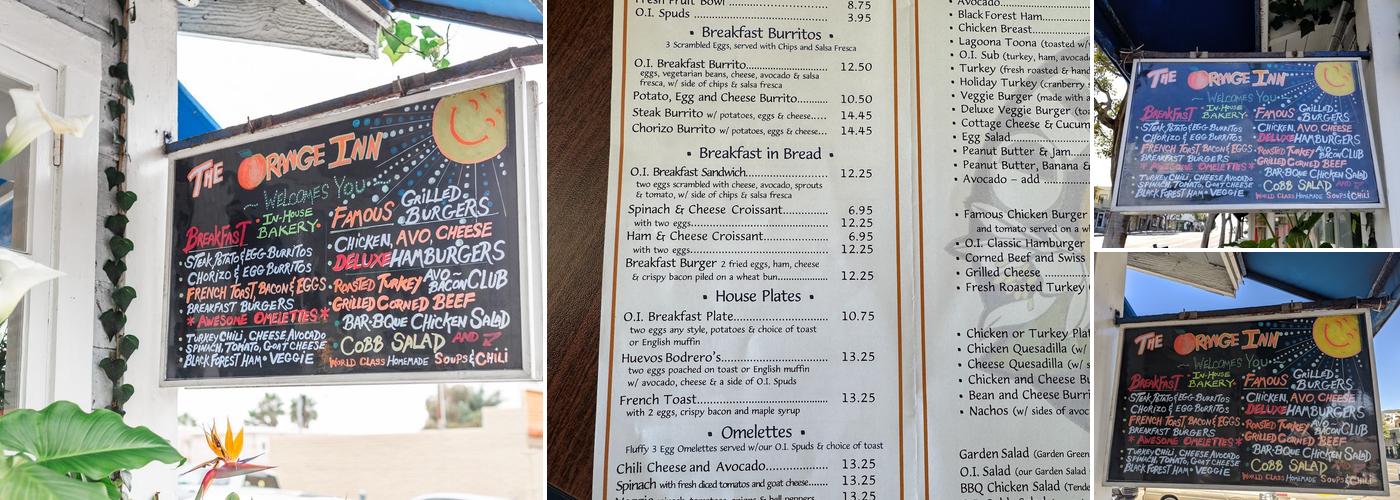 THE ORANGE INN
~ WELCOMES YOU ~
BREAKFAST IN-HOUSE BAKERY
• STEAK, POTATO & EGG BURRITOS
• CHORIZO & EGG BURRITOS
• FRENCH TOAST, BACON & EGGS
• BREAKFAST BURGERS
* AWESOME OMELETTES *
• TURKEY CHILI, CHEESE AVOCADO
SPINACH, TOMATO, GOAT CHEESE
BLACK FOREST HAM • VEGGIE
FAMOUS GRILLED BURGERS
• CHICKEN, AVO, CHEESE
DELUXE HAMBURGERS
• ROASTED TURKEY AVO~BACON CLUB
• GRILLED CORNED BEEF
• BAR-BQUE CHICKEN SALAD
• COBB SALAD AND
WORLD CLASS HOMEMADE SOUPS & CHILI
Fresh Fruit Bowl 8.75
O.I. Spuds 3.95
• Breakfast Burritos •
3 Scrambled Eggs, served with Chips and Salsa Fresca
O.I. Breakfast Burrito 12.50
eggs, vegetarian beans, cheese, avocado & salsa
fresca, w/ side of chips & salsa fresca
Potato, Egg and Cheese Burrito 10.50
Steak Burrito w/ potatoes, eggs & cheese 14.45
Chorizo Burrito w/ potatoes, eggs & cheese 14.45
• Breakfast in Bread •
O.I. Breakfast Sandwich 12.25
two eggs scrambled with cheese, avocado, sprouts
& tomato, w/ side of chips & salsa fresca
Spinach & Cheese Croissant 6.95
with two eggs 12.25
Ham & Cheese Croissant 6.95
with two eggs 12.25
Breakfast Burger 2 fried eggs, ham, cheese
& crispy bacon piled on a wheat bun 12.25
• House Plates •
O.I. Breakfast Plate 10.75
two eggs any style, potatoes & choice of toast
or English muffin
Huevos Bodrero's 13.25
two eggs poached on toast or English muffin
w/ avocado, cheese & a side of O.I. Spuds
French Toast 13.25
with 2 eggs, crispy bacon and maple syrup
• Omelettes •
Fluffy 3 Egg Omelettes served w/our O.I. Spuds & choice of toast
Chili Cheese and Avocado 13.25
Spinach with fresh diced tomatoes and goat cheese 13.25
13.25
• Avocado
• Black Forest Ham
• Chicken Breast
• Lagoona Toona (toasted w/
• O.I. Sub (turkey, ham, avocado
• Turkey (fresh roasted & hand
• Holiday Turkey (cranberry
• Veggie Burger (made with a
• Deluxe Veggie Burger
• Cottage Cheese & Cucum
• Egg Salad
• Peanut Butter & Jam
• Peanut Butter, Banana &
• Avocado – add
• Famous Chicken Burger
and tomato served on a
• O.I. Classic Hamburger
• Corned Beef and Swiss
• Grilled Cheese
• Fresh Roasted Turkey
• Chicken or Turkey Plat
• Chicken Quesadilla (w/
• Cheese Quesadilla (w/
• Chicken and Cheese Bu
• Bean and Cheese Burri
• Nachos (w/ sides of avoc
Garden Salad (Garden Green
O.I. Salad (our Garden Salad
BBQ Chicken Salad (Tende
THE ORANGE INN
~ WELCOMES YOU ~
BREAKFAST IN-HOUSE BAKERY
• STEAK, POTATO & EGG BURRITOS
• CHORIZO & EGG BURRITOS
• FRENCH TOAST, BACON & EGGS
• BREAKFAST BURGERS
* AWESOME OMELETTES *
• TURKEY CHILI, CHEESE AVOCADO
SPINACH, TOMATO, GOAT CHEESE
BLACK FOREST HAM • VEGGIE
FAMOUS GRILLED BURGERS
• CHICKEN, AVO, CHEESE
DELUXE HAMBURGERS
• ROASTED TURKEY AVO BACON CLUB
• GRILLED CORNED BEEF
• BAR-BQUE CHICKEN SALAD
• COBB SALAD AND
WORLD CLASS HOMEMADE SOUPS & CHILI
THE ORANGE INN
~ WELCOMES YOU ~
BREAKFAST IN-HOUSE BAKERY
• STEAK, POTATO & EGG BURRITOS
• CHORIZO & EGG BURRITOS
• FRENCH TOAST, BACON & EGGS
• BREAKFAST BURGERS
* AWESOME OMELETTES *
• TURKEY CHILI, CHEESE AVOCADO
SPINACH, TOMATO, GOAT CHEESE
BLACK FOREST HAM • VEGGIE
FAMOUS GRILLED BURGERS
• CHICKEN, AVO, CHEESE
DELUXE HAMBURGERS
• ROASTED TURKEY AVO BACON CLUB
• GRILLED CORNED BEEF
• BAR-BQUE CHICKEN SALAD
• COBB SALAD AND
WORLD CLASS HOMEMADE SOUPS & CHILI